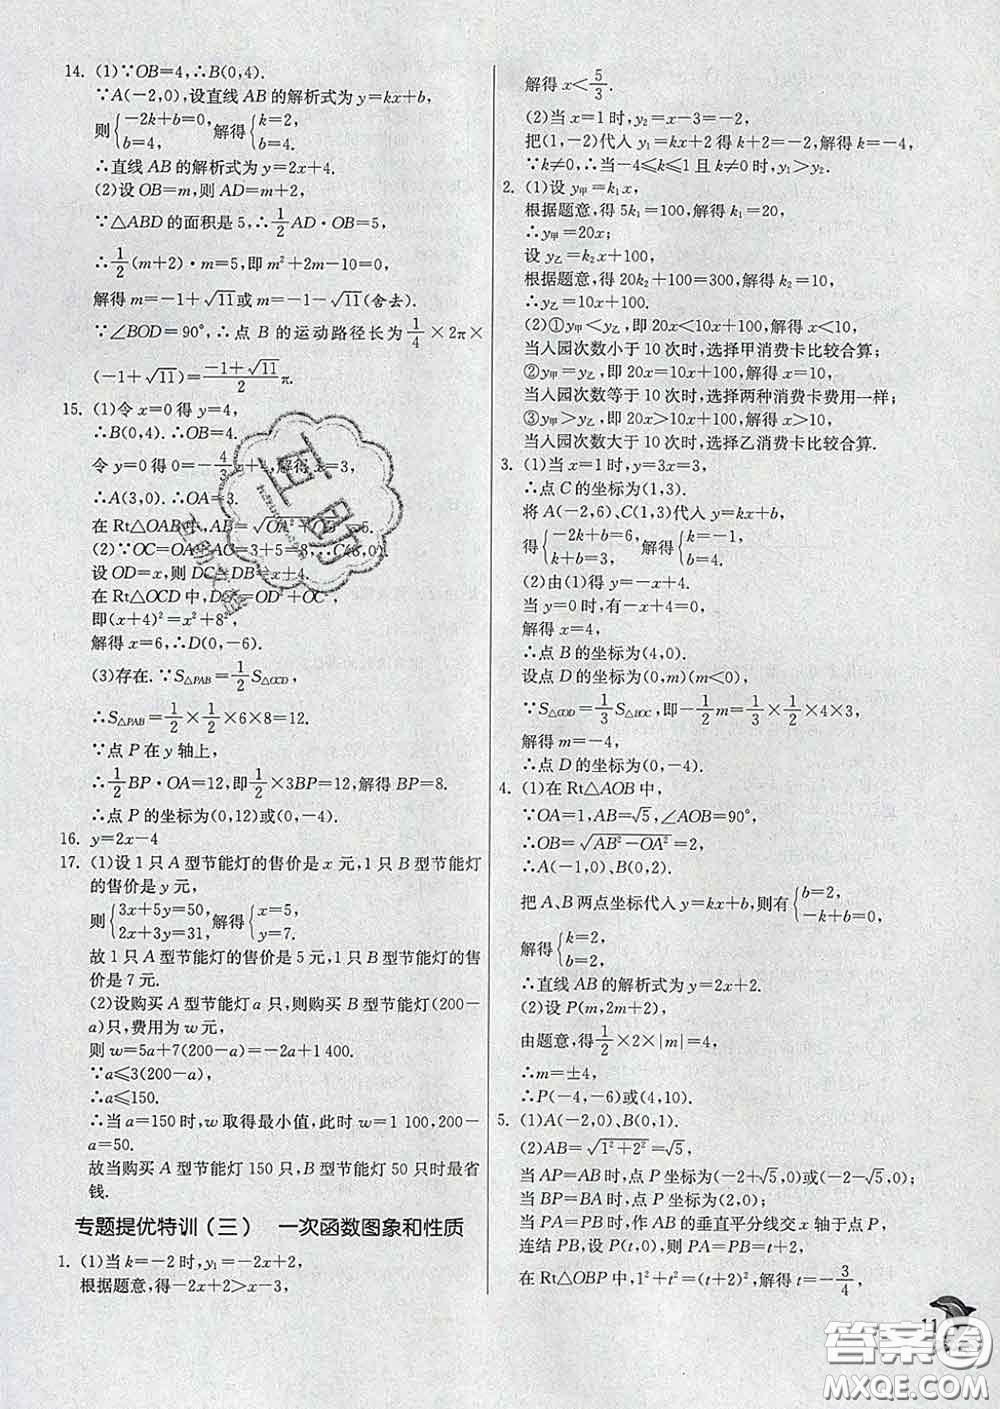 14. (1)∵OB=4,∴B(0,4).
∵A(-2,0),设直线 AB 的解析式为 y=kx+b,
则{-2k+b=0, b=4. 解得{k=2, b=4.
∴直线 AB 的解析式为 y=2x+4.
(2)设 OB=m,则 AD=m+2,
∵△ABD 的面积是 5,∴1/2 AD·OB=5,
∴1/2(m+2)·m=5,即 m²+2m-10=0,
解得 m=-1+√11或 m=-1-√11(舍去).
∵∠BOD=90°,∴点 B 的运动路径长为1/4×2π×
(-1+√11)=(-1+√11)/2 π.
15. (1)令 x=0 得 y=4,
∴B(0,4).∴OB=4.
令 y=0 得 0=-4/3x+4,解得 x=3,
∴A(3,0).∴OA=3.
在 Rt△OAB 中,AB=√(OA²+OB²)=5.
(2)∵OC=OA+AC=3+5=8,∴C(8,0).
设 OD=x,则 DC=DB=x+4.
在 Rt△OCD 中,DC²=OD²+OC²,
即(x+4)²=x²+8²,
解得 x=6,∴D(0,-6).
(3)存在.∵S△PAB=1/2 S△OCD,
∴S△PAB=1/2×1/2×6×8=12.
∵点 P 在 y 轴上,
∴1/2 BP·OA=12,即1/2×3BP=12,解得 BP=8.
∴点 P 的坐标为(0,12)或(0,-4).
16. y=2x-4
17. (1)设 1 只 A 型节能灯的售价是 x 元,1 只 B 型节能灯
的售价是 y 元,
则{3x+5y=50, 2x+3y=31, 解得{x=5, y=7.
故 1 只 A 型节能灯的售价是 5 元,1 只 B 型节能灯的售
价是 7 元.
(2)设购买 A 型节能灯 a 只,则购买 B 型节能灯(200-
a)只,费用为 w 元,
则 w=5a+7(200-a)=-2a+1 400.
∵a⩽3(200-a),
∴a⩽150.
∴当 a=150 时,w 取得最小值,此时 w=1 100,200-
a=50.
故当购买 A 型节能灯 150 只,B 型节能灯 50 只时最省
钱.
专题提优特训(三) 一次函数图象和性质
1. (1)当 k=-2 时,y₁=-2x+2,
根据题意,得-2x+2>x-3,
解得 x<5/3.
(2)当 x=1 时,y₂=x-3=-2,
把(1,-2)代入 y₁=kx+2 得 k+2=-2,解得 k=-4,
∵k≠0,∴当-4⩽k⩽1 且 k≠0 时,y₁>y₂.
2. (1)设 y甲=k₁x,
根据题意,得 5k₁=100,解得 k₁=20,
∴y甲=20x;
设 y乙=k₂x+100,
根据题意,得 20k₂+100=300,解得 k₂=10,
∴y乙=10x+100.
(2)①y甲<y乙,即 20x<10x+100,解得 x<10,
当入园次数小于 10 次时,选择甲消费卡比较合算;
②y甲=y乙,即 20x=10x+100,解得 x=10,
当入园次数等于 10 次时,选择两种消费卡费用一样;
③y甲>y乙,即 20x>10x+100,解得 x>10,
当入园次数大于 10 次时,选择乙消费卡比较合算.
3. (1)当 x=1 时,y=3x=3,
∴点 C 的坐标为(1,3).
将 A(-2,6)、C(1,3)代入 y=kx+b,
得{-2k+b=6, k+b=3, 解得{k=-1, b=4.
(2)由(1)得 y=-x+4.
当 y=0 时,有-x+4=0,
解得 x=4,
∴点 B 的坐标为(4,0).
设点 D 的坐标为(0,m)(m<0),
∵S△COD=1/3 S△BOC,即-1/2m=1/3×1/2×4×3,
解得 m=-4,
∴点 D 的坐标为(0,-4).
4. (1)在 Rt△AOB 中,
∵OA=1,AB=√5,∠AOB=90°,
∴OB=√(AB²-OA²)=2,
∴A(-1,0)、B(0,2).
把 A、B 两点坐标代入 y=kx+b,则有{b=2, -k+b=0,
解得{k=2, b=2,
∴直线 AB 的解析式为 y=2x+2.
(2)设 P(m,2m+2),
由题意,得1/2×2×|m|=4,
∴m=±4,
∴P(-4,-6)或(4,10).
5. (1)A(-2,0)、B(0,1).
(2)AB=√(1²+2²)=√5,
当 AP=AB 时,点 P 坐标为(-2+√5,0)或(-2-√5,0);
当 BP=BA 时,点 P 坐标为(2,0);
当 PA=PB 时,作 AB 的垂直平分线交 x 轴于点 P,
连结 PB,设 P(t,0),则 PA=PB=t+2,
在 Rt△OBP 中,1²+t²=(t+2)²,解得 t=-3/4,
11
答案圈
MXQE.COM